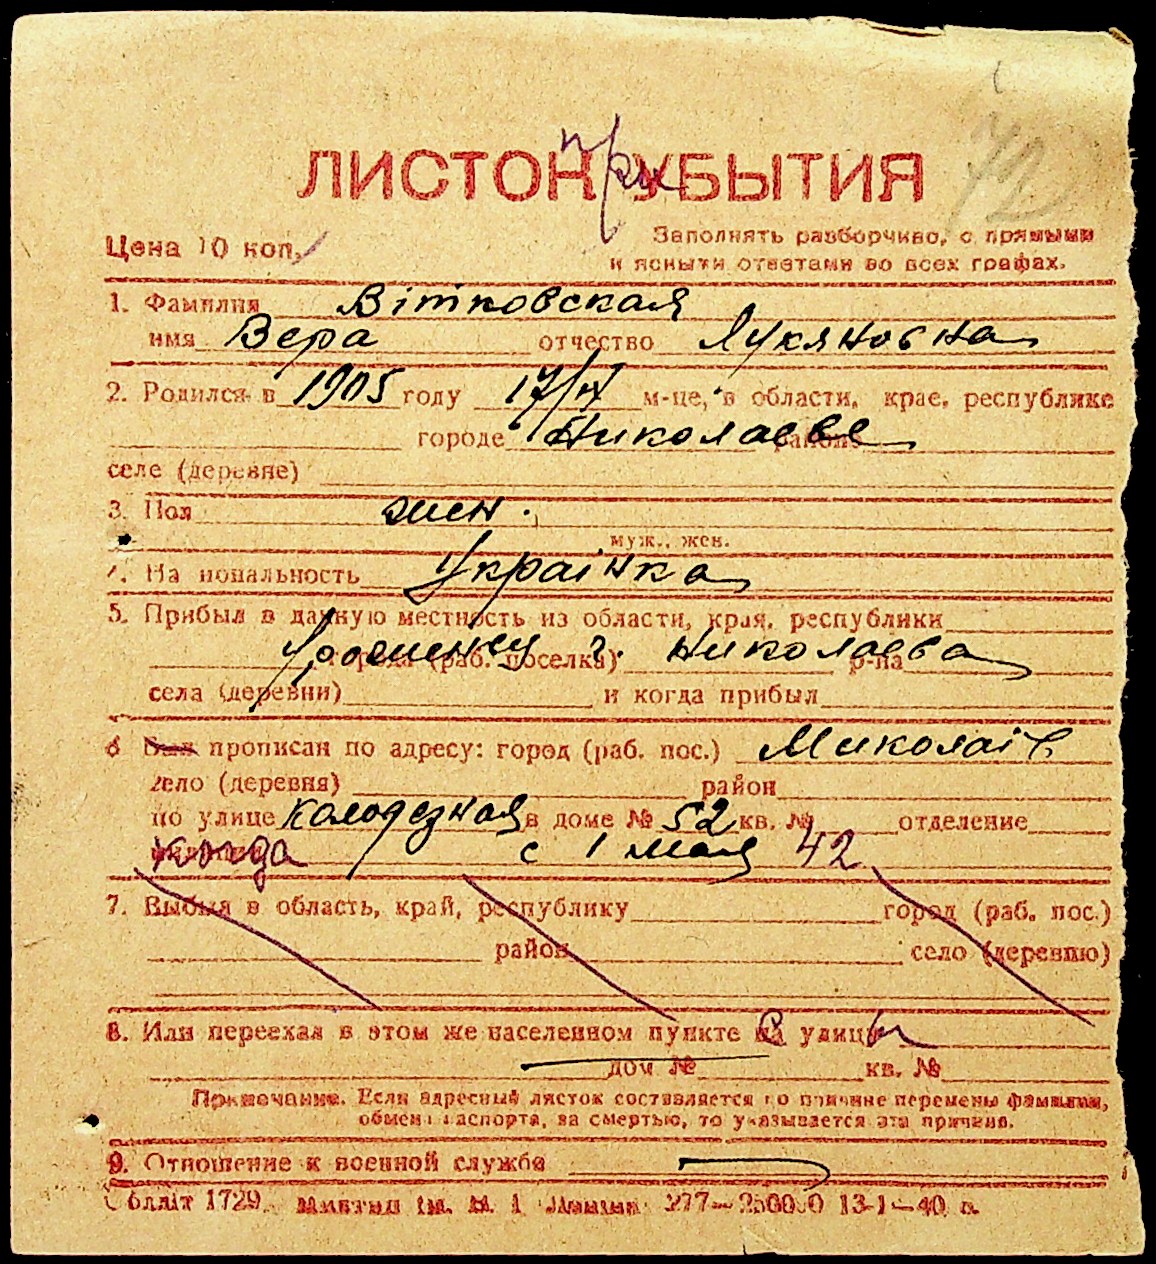 72
ЛИСТОК при УБЫТИЯ
Цена 10 коп.
Заполнять разборчиво, с прямыми
и ясными ответами во всех графах.
1. Фамилия Вітковская
имя Вера отчество Лукяновна
2. Родился в 1905 году 17/IX м-це, в области, крае, республике
городе Николаеве районе
селе (деревне)
3. Пол жен.
муж., жен.
4. Национальность Українка
5. Прибыл в данную местность из области, края, республики
города (раб. поселка) г. Николаева р-на
села (деревни) и когда прибыл
6 Был прописан по адресу: город (раб. пос.) Миколаїв
село (деревня) район
по улице колодезная в доме № 52 кв. № отделение
когда с 1 мая 42
7. Выбыл в область, край, республику город (раб. пос.)
район село (деревню)
8. Или переехал в этом же населенном пункте с улицы
дом № кв. №
Примечание. Если адресный листок составляется по причине перемены фамилии,
обмена паспорта, за смертью, то указывается эта причина.
9. Отношение к военной службе
Обліт 1729. 277— 25000 13-1—40 г.